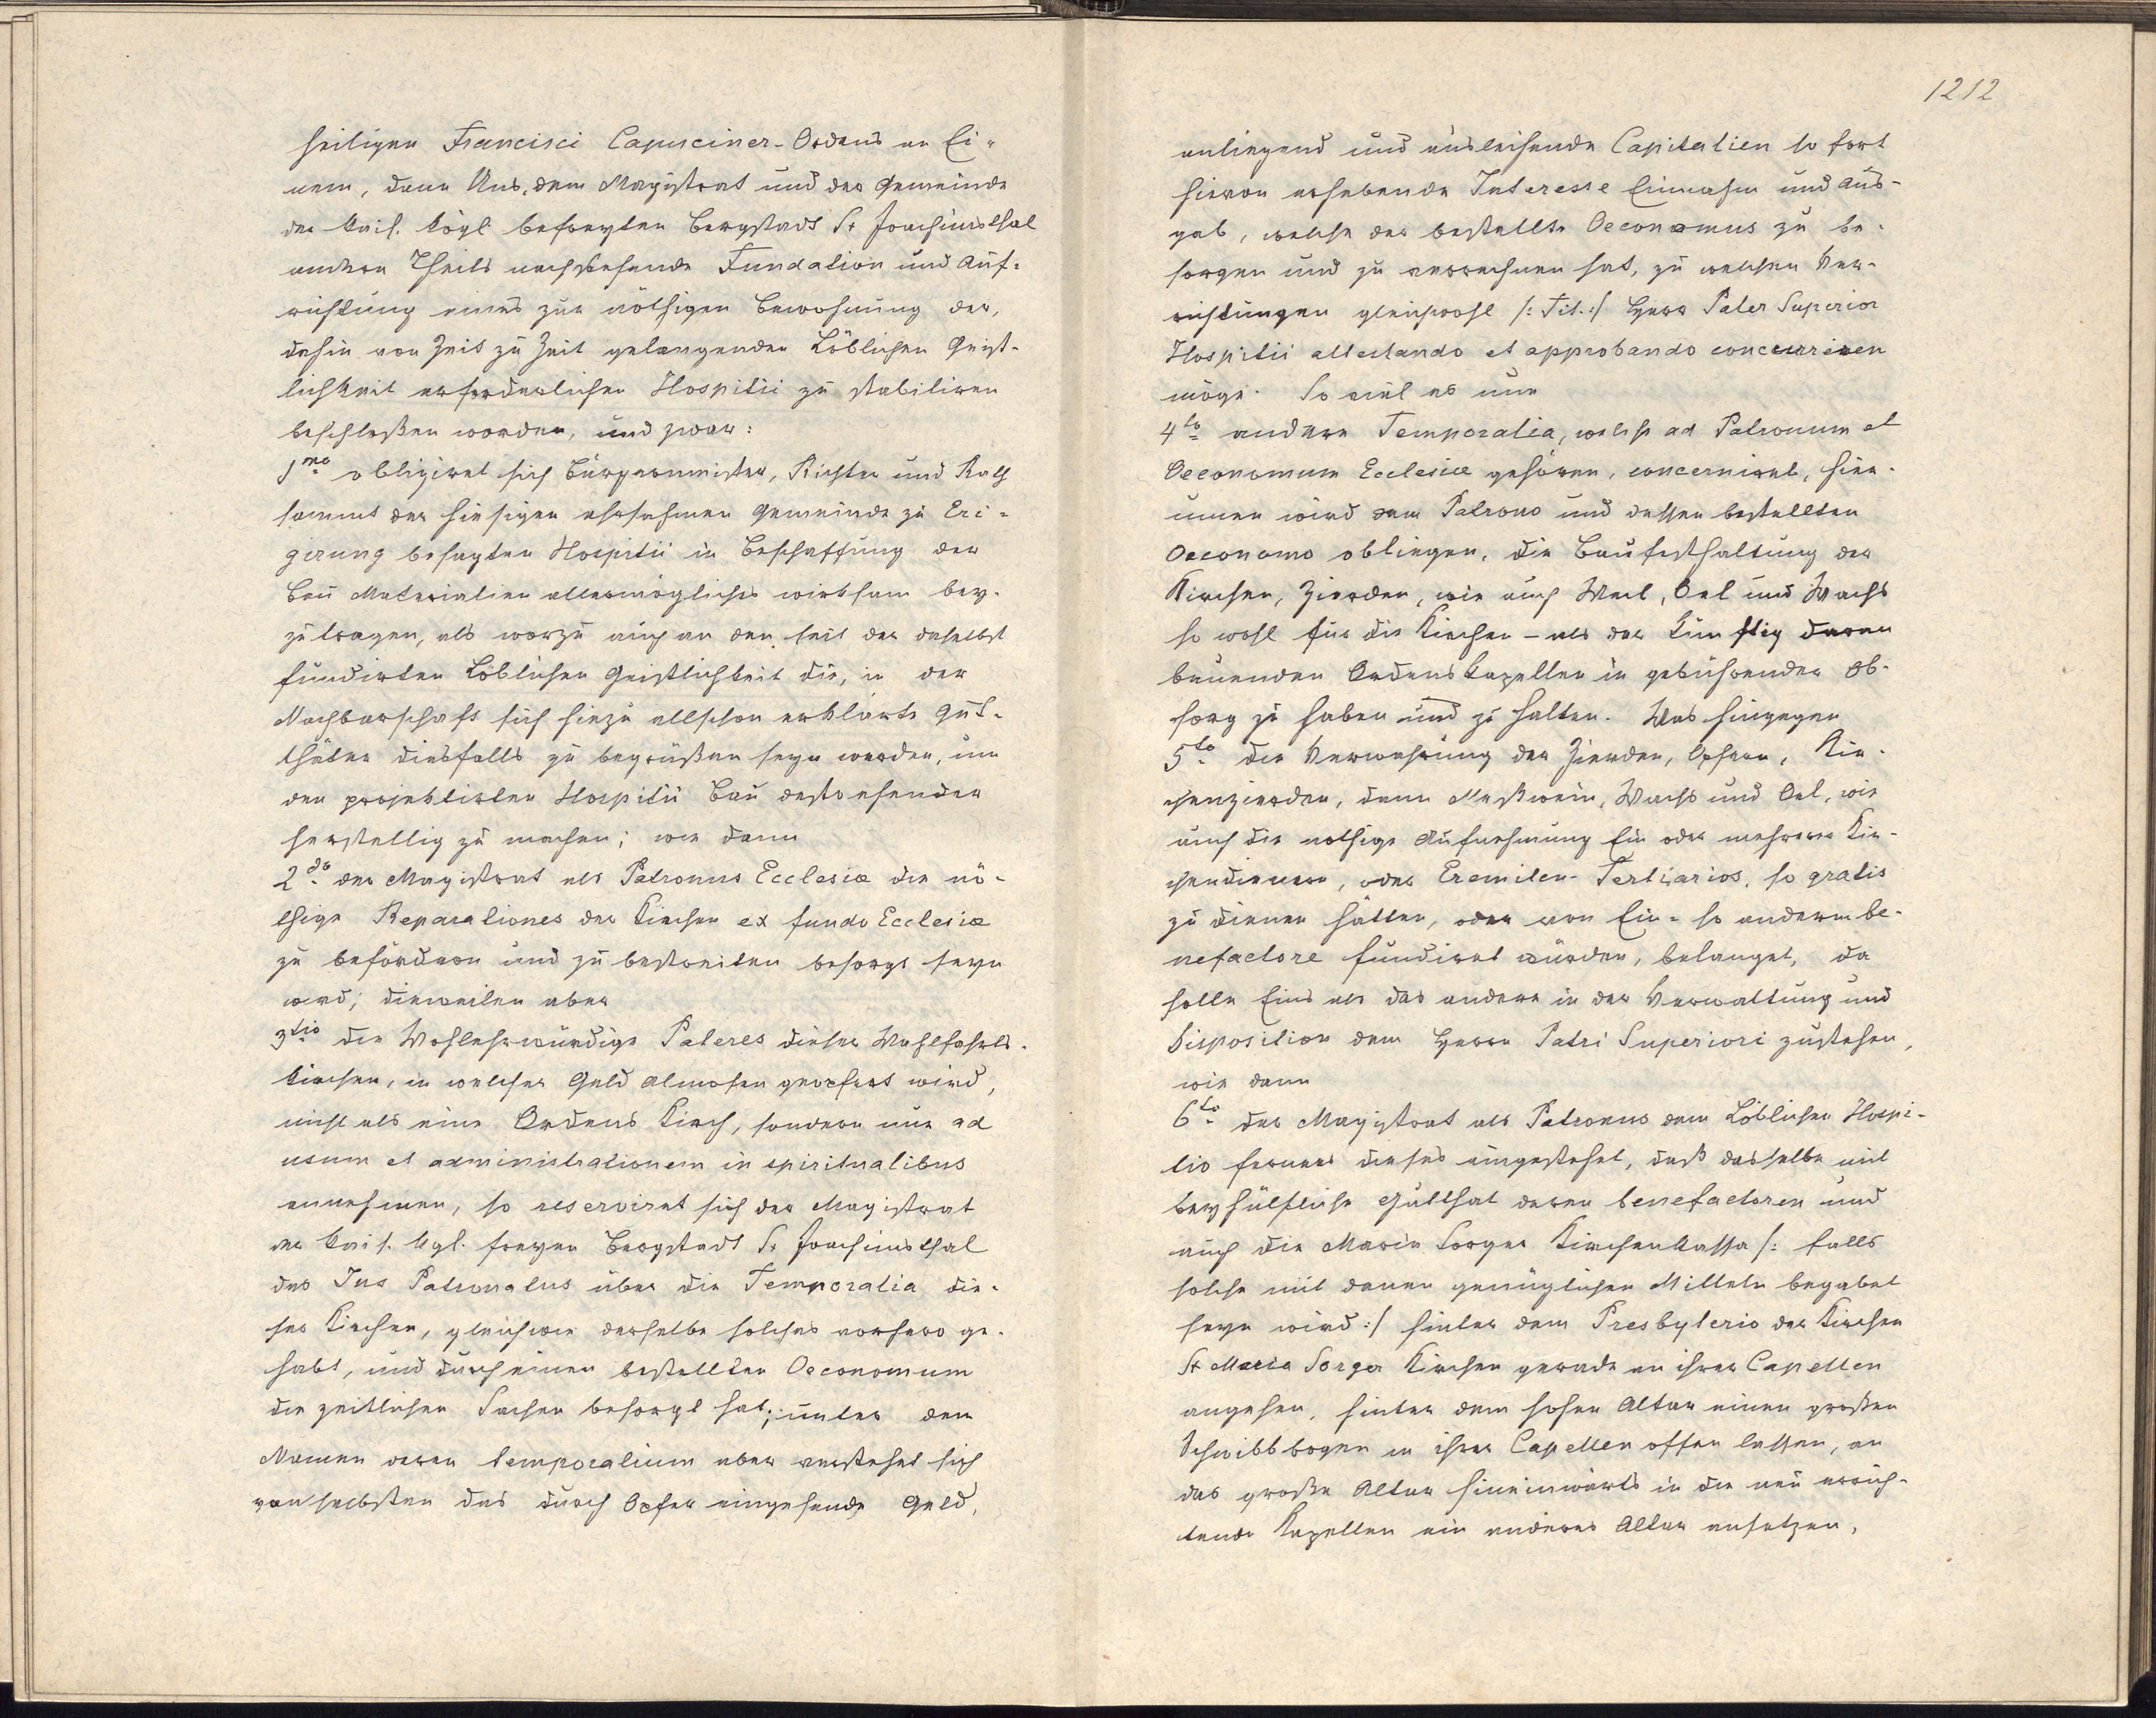 heiligen Francisci Capuciner-Ordens an Ei-
nem, dann Uns, dem Magistrat und der Gemeinde
der kais. kögl. befreyten Bergstadt St Joachimsthal
andern Theils nachstehende Fundation und Auf-
richtung eines zur nöthigen Bewohnung der,
dahin von Zeit zu Zeit gelangenden Löblichen Geist-
lichkeit erforderlichen Hospitii zu stabiliren
beschloßen worden, und zwar:
1mo obligiret sich Bürgermeister, Richter und Rath
sammt der hiesigen ehrsahmen Gemeinde zu Eri-
girung besagten Hospitii in Beschaffung der
Bau Materialien allermöglichst wirksam bey-
zutragen, als worzu auch an den seit der daselbst
fundirten Löblichen Geistlichkeit die, in der
Nachbarschaft sich hiezu allschon erklärte Gut-
thäter diesfalls zu begrüßen seyn werden, um
den projektirten Hospitii Bau destoehender
herstellig zu machen; wie dann
2do der Magistrat als Patronus Ecclesiæ die nö-
thige Reparationes der Kirchen ex fundo Ecclesiæ
zu befördern und zu bestreiten besorgt seyn
wird; dieweilen aber
3tio die Wohlehrwürdige Pateres dieser Wahlfahrts-
kirchen, in welcher Geld Almosen geopfert wird,
nicht als eine Ordens Kirch, sondern nur ad
usum et administrationem in spiritualibus
annehmen, so reserviret sich der Magistrat
der kais. kgl. freyen Bergstadt St Joachimsthal
das Jus Patronatus über die Temporalia die-
ser Kirchen, gleichwie derselbe solches vorhero ge-
habt, und durch einen bestellten Oeconomum
die zeitlichen Sachen besorgt hat; unter dem
Namen deren temporalium aber verstehet sich
von selbsten das durch Opfer eingehende Geld,
1212
anliegend und ausleihende Capitalien so fort
hievon erhebende Interesse Einnahm und Aus-
gab, welche der bestellte Oeconomus zu be-
sorgen und zu verrechnen hat, zu welchen Ver-
richtungen gleichwohl /: Tit.:/ Herr Pater Superior
Hospitii attestando et approbando concurriren
möge. So viel es nun
4to andere Temporalia, welche ad Patronum et
Oeconomum Ecclesiæ gehören, concerniret, hier-
innen wird dem Patrono und dessen bestellten
Oeconomo obliegen, die Baufesthaltung der
Kirchen, Zierden, wie auch Wein, Oel und Wachs
so wohl für die Kirchen - als der künftig daran
bauenden Ordenskapellen in gebührender Ob-
sorg zu haben und zu halten. Was hingegen
5to die Verwahrung der Zierden, Opfern, Kir-
chenzierden, dann Meßwein, Wachs und Oel, wie
auch die nothige Aufnehmung Ein oder mehrerer Kir-
chendienern, oder Eremiten-Tertiarios, so gratis
zu dienen hätten, oder von Ein- so anderm be-
nefactore fundiret würden, belanget, da
solle Eins als das andere in der Verwaltung und
Disposition dem Herrn Patri Superiori zustehen,
wie dann
6to der Magistrat als Patronus dem Löblichen Hospi-
tio ferners dieses eingestehet, daß dasselbe mit
beyhülfliche Gutthat deren benefactoren und
auch die Maria Sorger Kirchenkassa /: falls
solche mit denen genüglichen Mitteln begabet
seyn wird :/ hinter dem Presbyterio der Kirchen
St Maria Sorger Kirchen gerade an ihrer Capellen
angehen, hinter dem hohen Altar einen großen
Schwibbbogen in ihrer Capellen offen lassen, an
das große Altar hineinwärts in die neu errich-
tende Kapellen ein anderes Altar ansetzen,